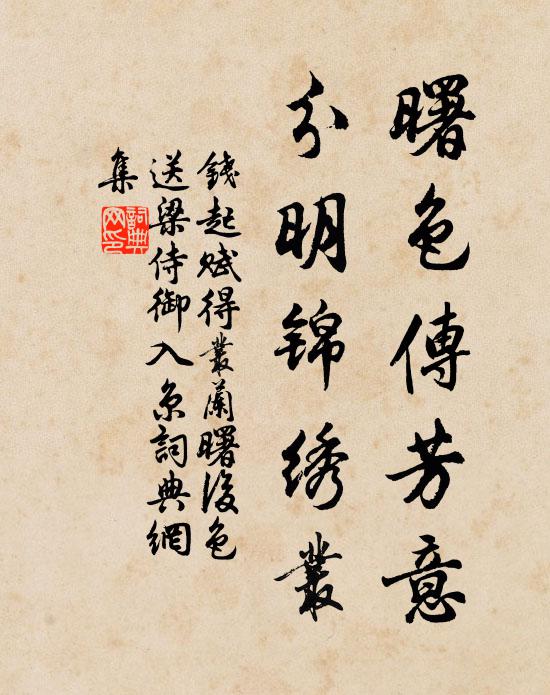 曙色傳芳意
分明錦绣叢
錢起賦得叢蘭曙後色
送梁侍御入京詞典網
集
詞典网印